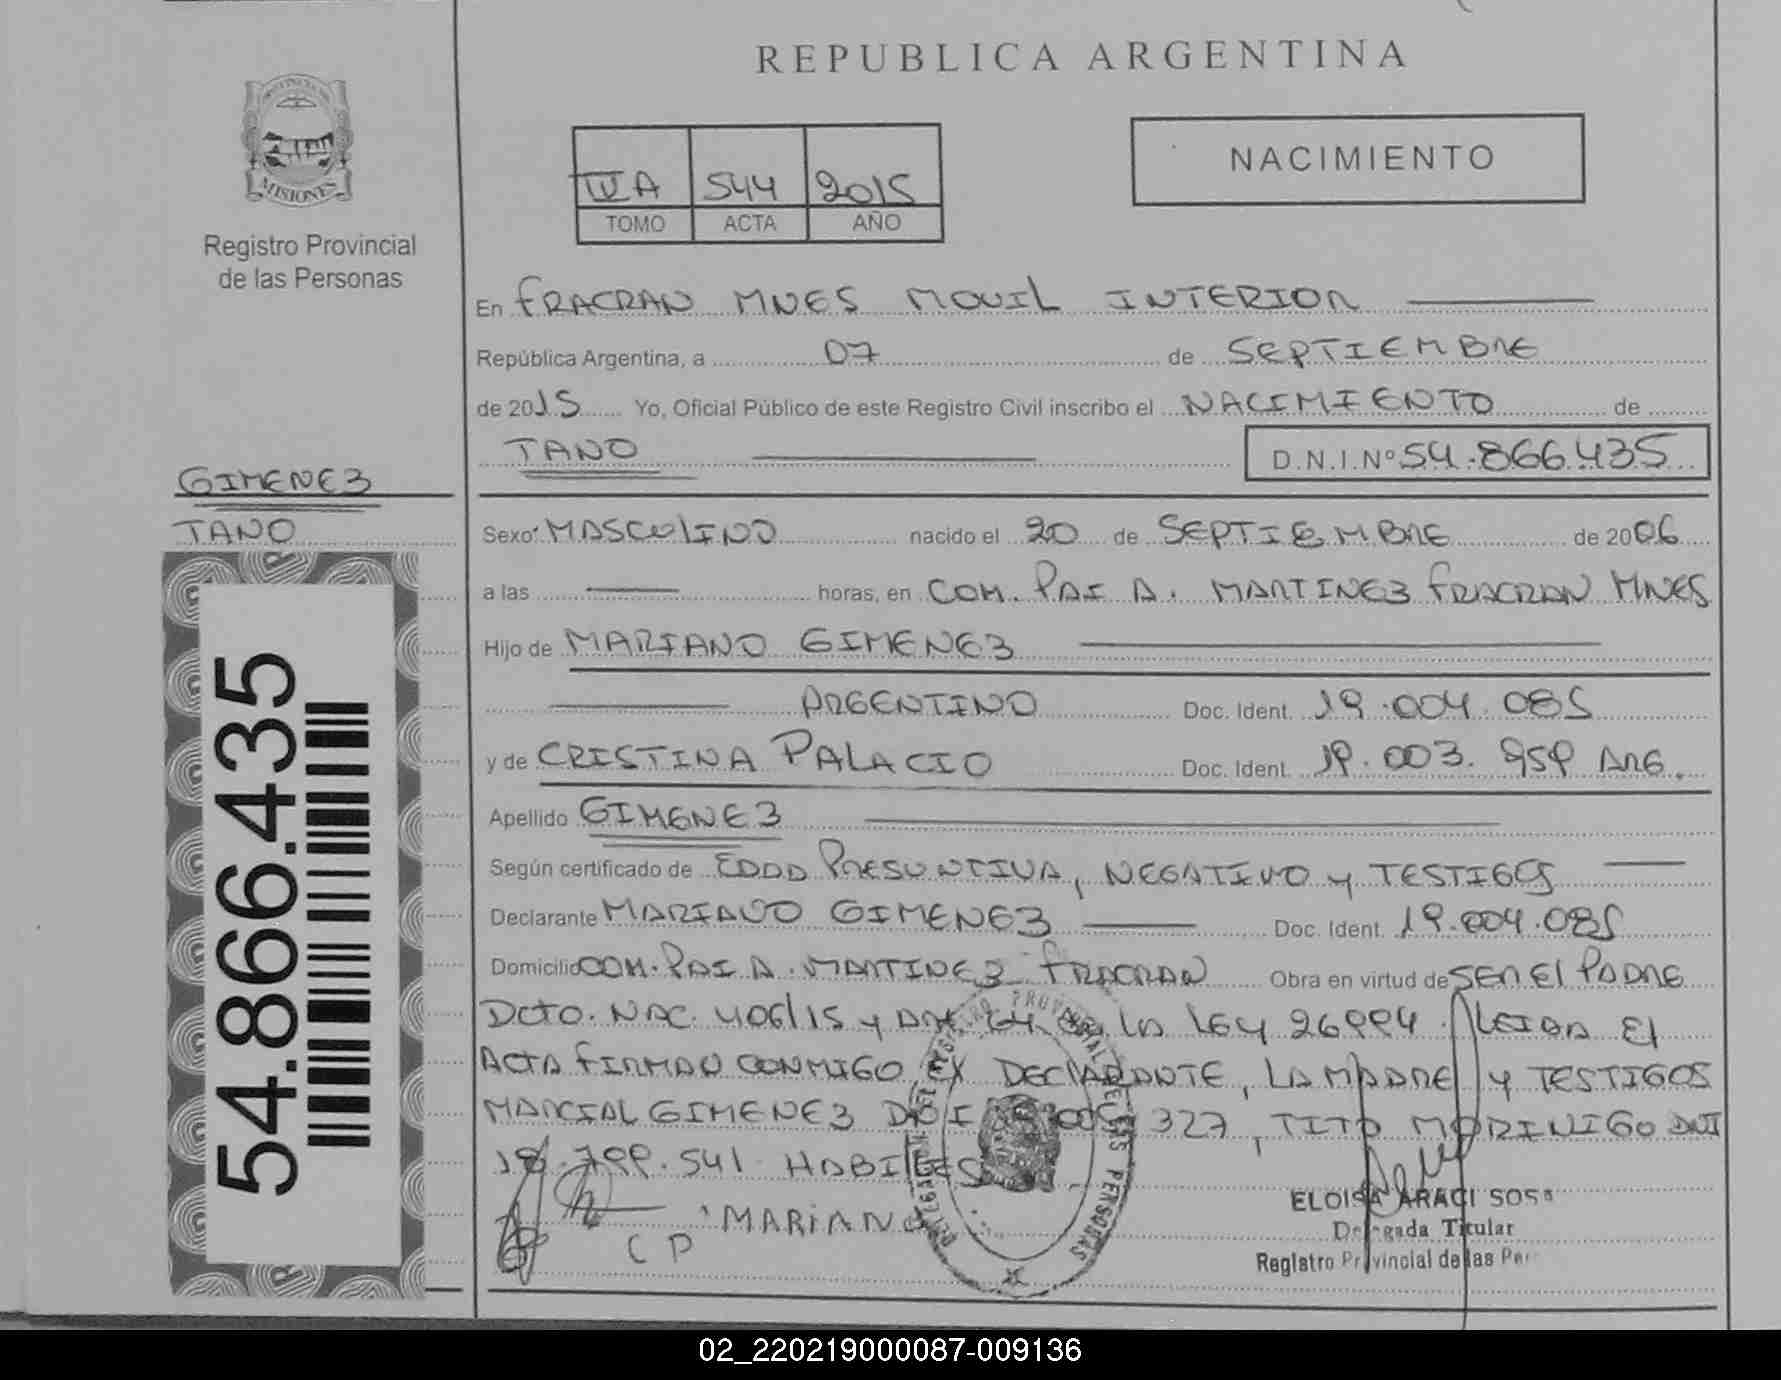 REPUBLICA ARGENTINA
MISIONES
Registro Provincial
de las Personas
IVA 544 2015
TOMO ACTA AÑO
NACIMIENTO
En FRACRAN MNES MOVIL INTERIOR
República Argentina, a 07 de SEPTIEMBRE
de 2015 Yo, Oficial Público de este Registro Civil inscribo el NACIMIENTO de
TANO D.N.I.Nº 54.866.435
GIMENEZ
TANO
54.866.435
Sexo: MASCULINO nacido el 20 de SEPTIEMBRE de 2006
a las horas, en COM. PAI A. MARTINEZ FRACRAN MNES
Hijo de MARIANO GIMENEZ
ARGENTINO Doc. Ident. 19.004.085
y de CRISTINA PALACIO Doc. Ident. 19.003.959 ARG.
Apellido GIMENEZ
Según certificado de EDAD PRESUNTIVA, NEGATIVO y TESTIGOS
Declarante MARIANO GIMENEZ Doc. Ident. 19.004.085
Domicilio COM. PAI A. MARTINEZ FRACRAN Obra en virtud de SER EL PADRE
DCTO. NAC. 406/15 y ART. 64 DE LA LEY 26994. LEIDA EL
ACTA FIRMAN CONMIGO EL DECLARANTE, LA MADRE y TESTIGOS
MARCIAL GIMENEZ DNI 327, TITO MORINIGO DNI
18.799.541 HABILES
MARIANO
C P
ELOISA ARACI SOSA
Delegada Titular
Registro Provincial de las Per
02_220219000087-009136